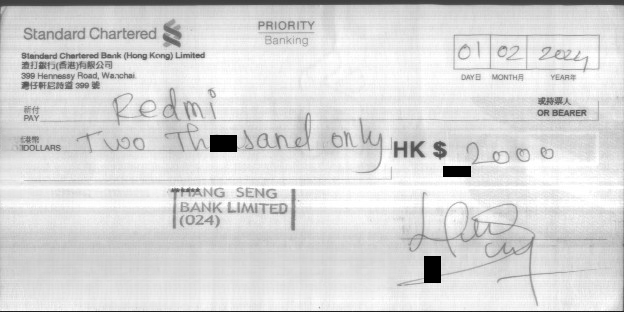 Standard Chartered
PRIORITY
Banking
Standard Chartered Bank (Hong Kong) Limited
渣打銀行(香港)有限公司
399 Hennessy Road, Wanchai
灣仔軒尼詩道 399 號
01 02 2024
DAY日 MONTH月 YEAR年
祈付
PAY Redmi
或持票人
OR BEARER
港幣
DOLLARS Two Th sand only
HK $ 2000
HANG SENG
BANK LIMITED
(024)